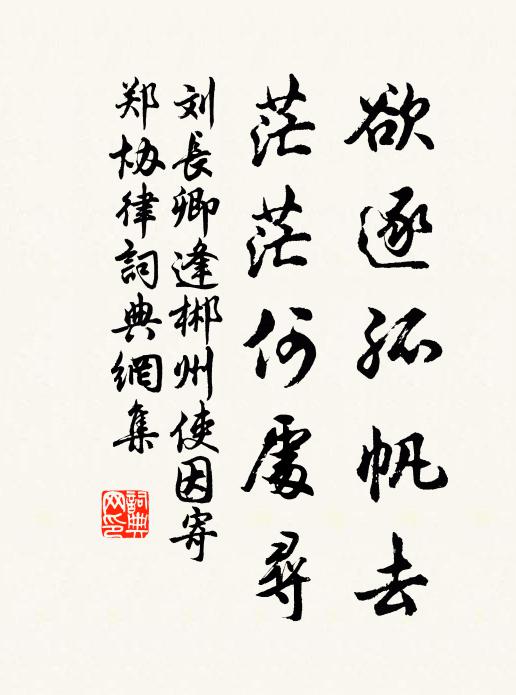 欲逐孤帆去
茫茫何處尋
刘長卿逢郴州使因寄
郑协律詞典網集
詞典
网印